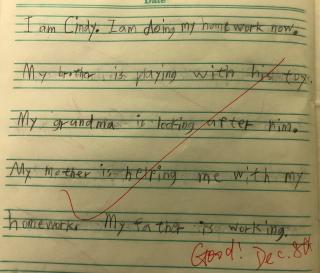 Date
I am Cindy. I am doing my homework now.
My brother is playing with his toy.
My grandma is looking after him.
My mother is helping me with my
homework. My father is working.
Good! Dec. 8th